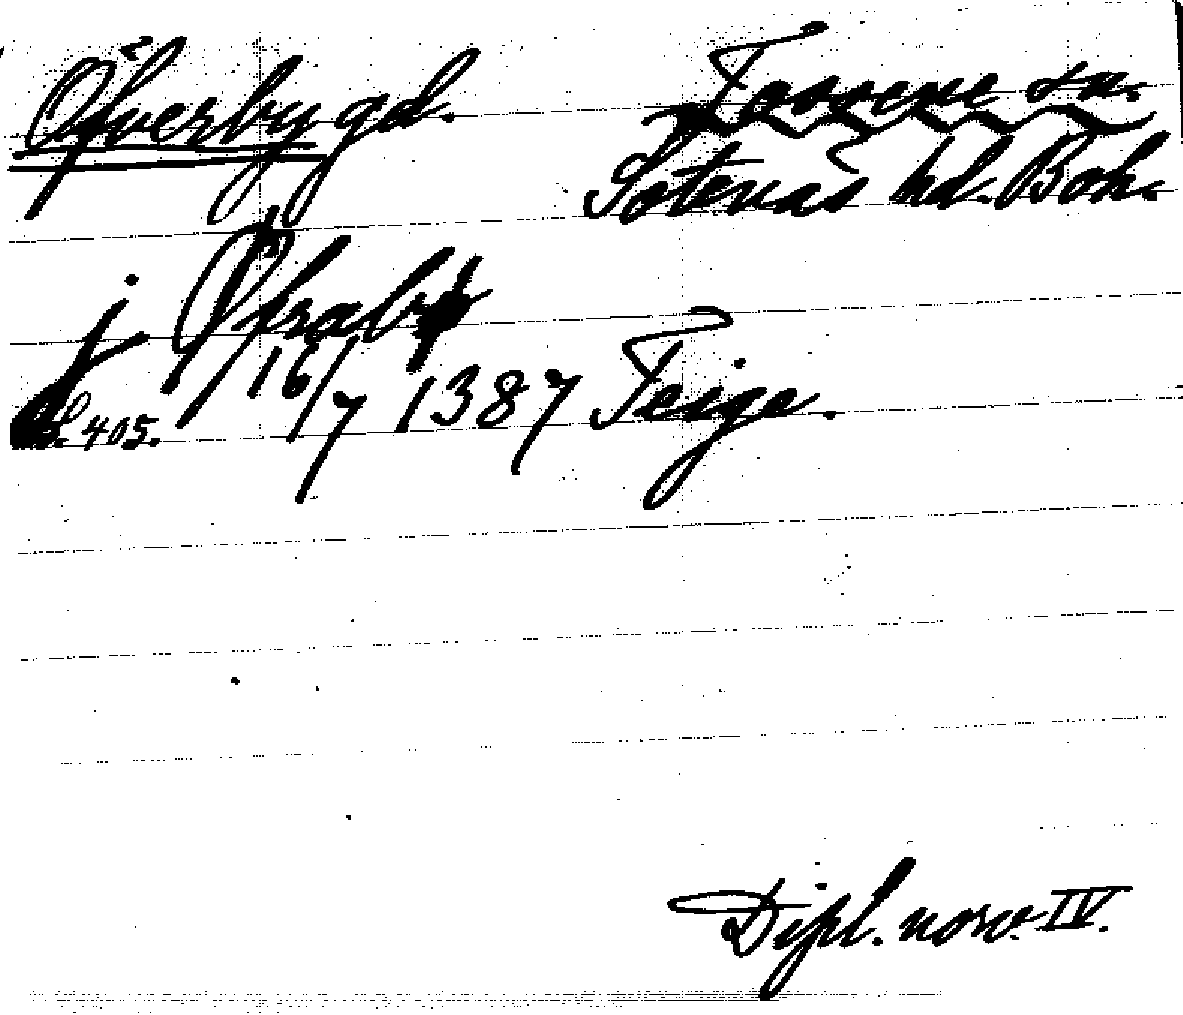 Öfverby gd. Tossene sn.
Sotenäs hd. Boh.
j Öfraby
16/7 1387 Teige.
405.
Dipl. norv. IV.